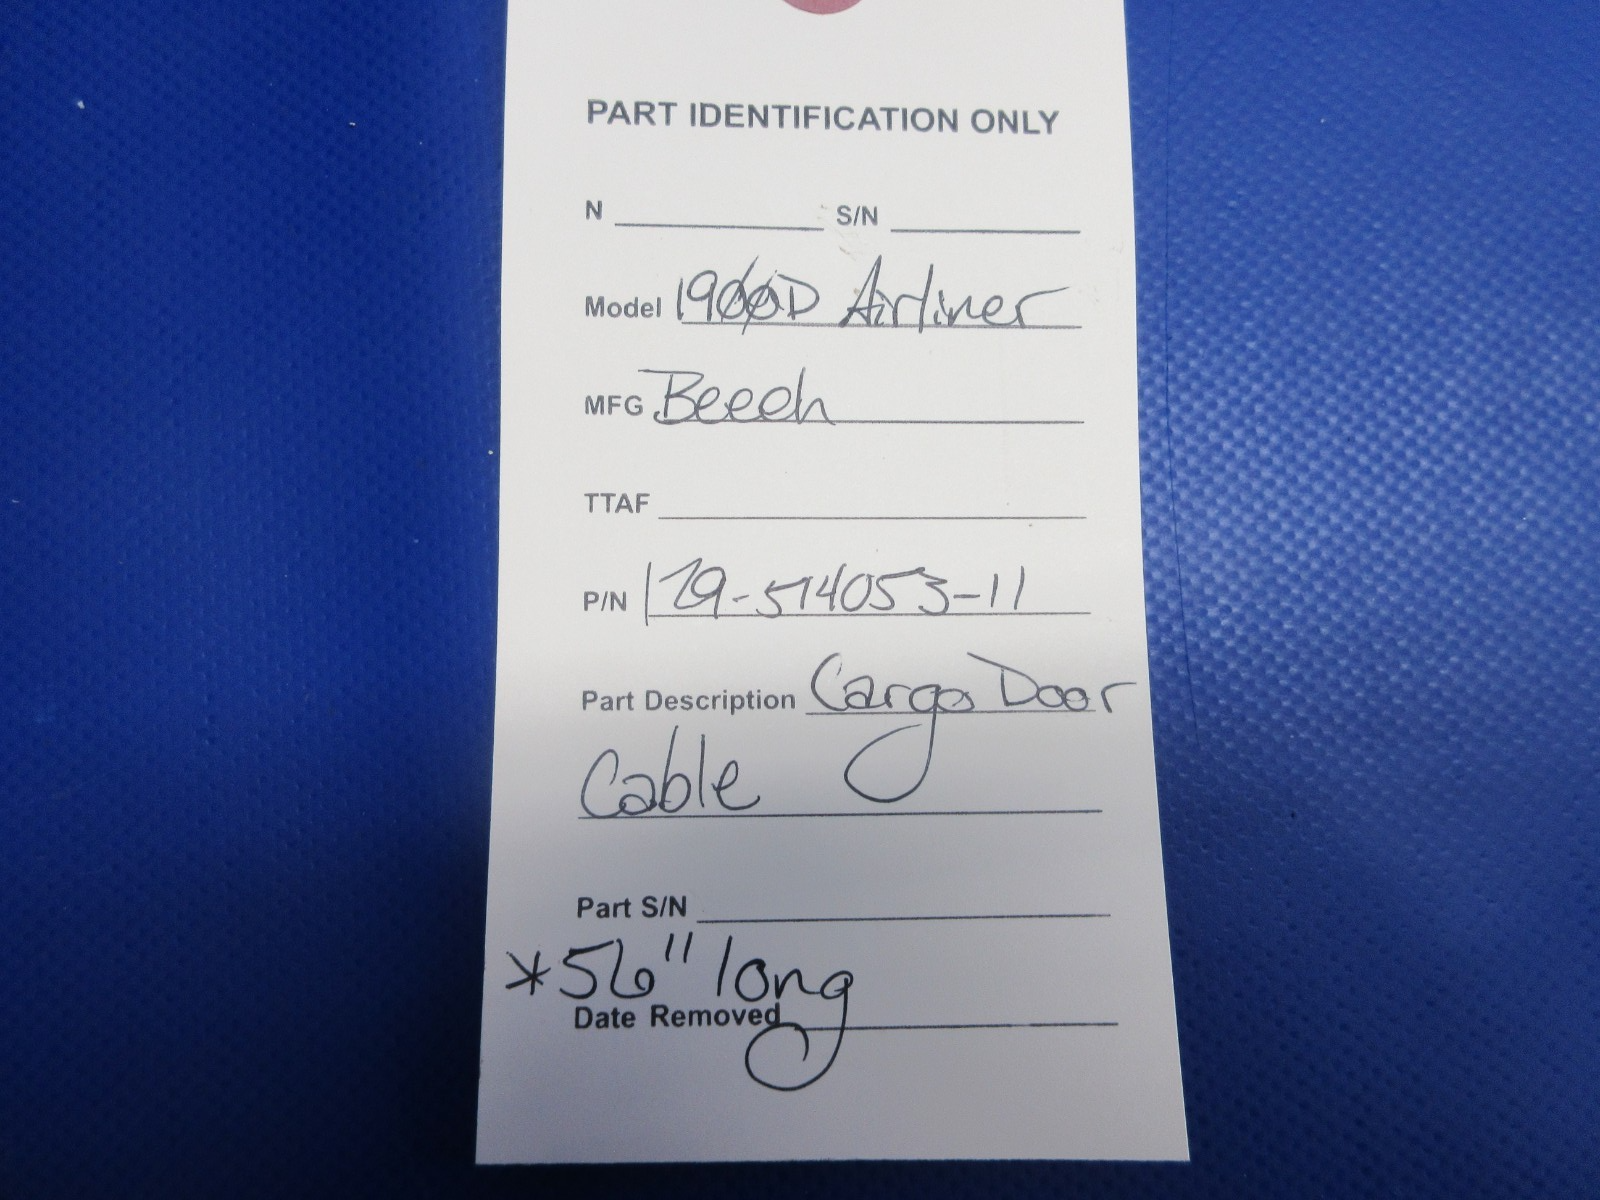 PART IDENTIFICATION ONLY
N S/N
Model 1900D Airliner
MFG Beech
TTAF
P/N 129-514053-11
Part Description Cargo Door
Cable
Part S/N
*56" long
Date Removed